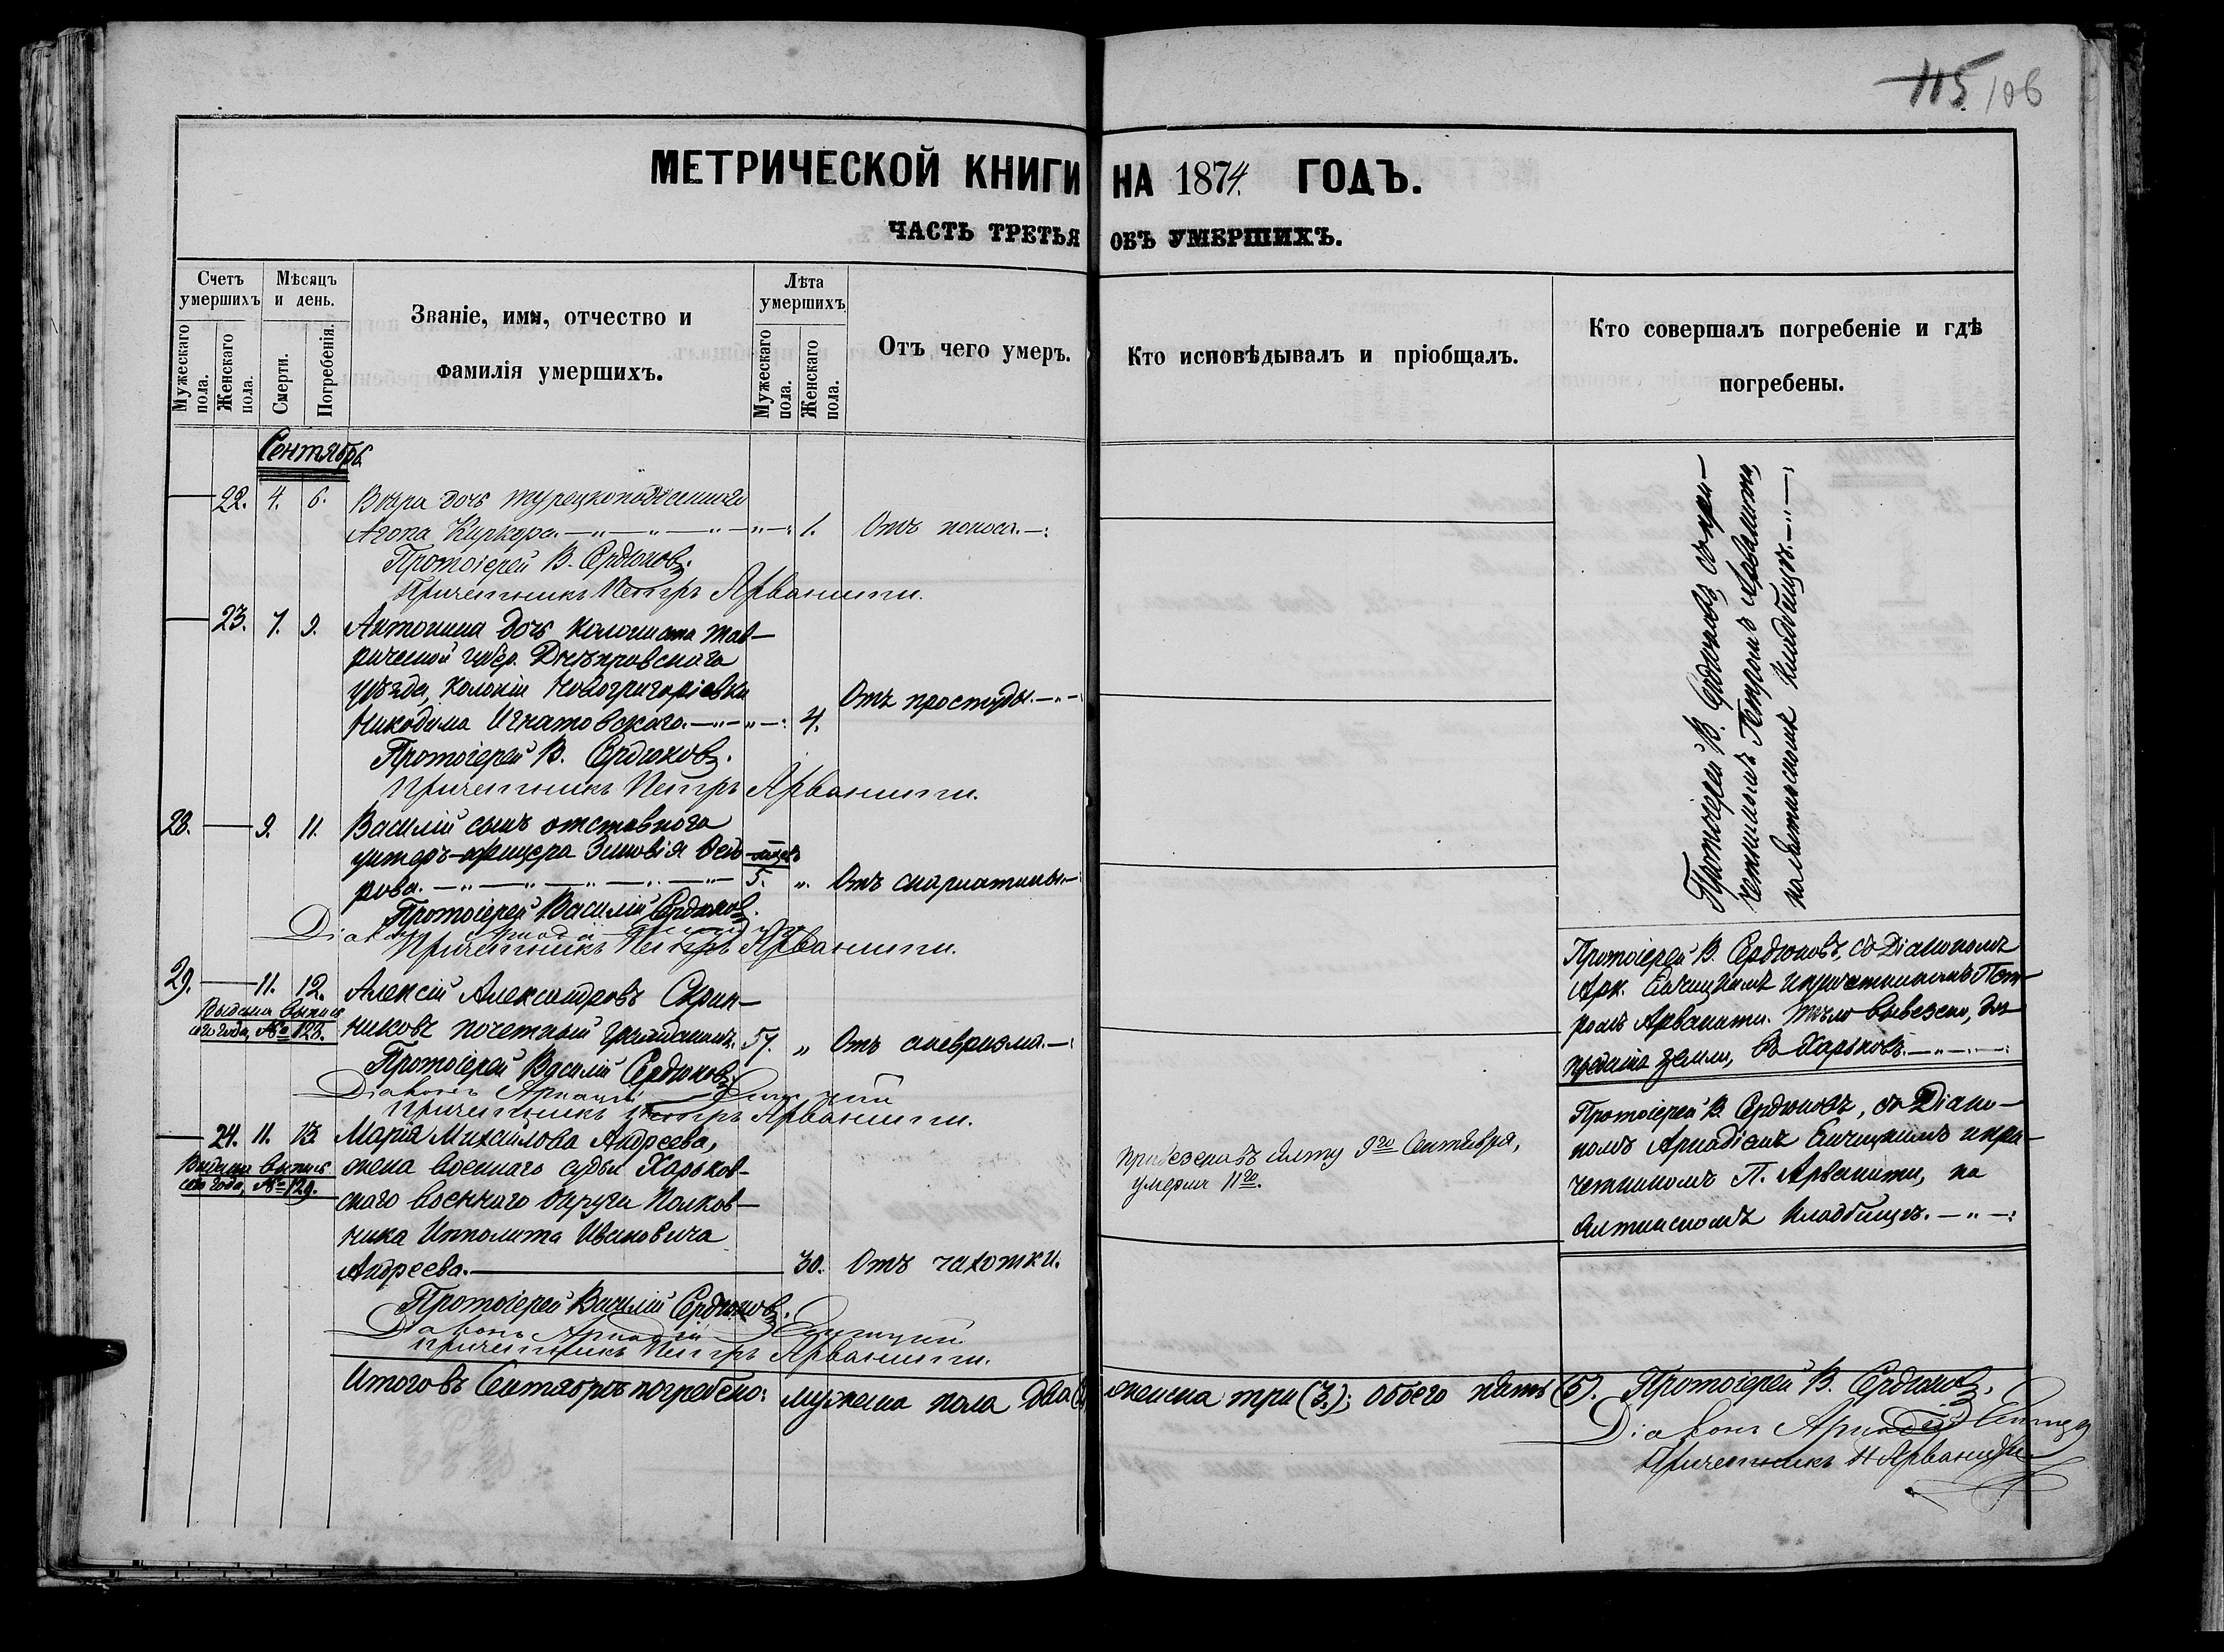 115 106
МЕТРИЧЕСКОЙ КНИГИ НА 1874 ГОДЪ.
ЧАСТЬ ТРЕТЬЯ ОБЪ УМЕРШИХЪ.
Счетъ умершихъ
Мужескаго пола.
Женскаго пола.
Мѣсяцъ и день.
Смерти.
Погребенія.
Званіе, имя, отчество и
фамилія умершихъ.
Лѣта умершихъ
Мужескаго пола.
Женскаго пола.
Отъ чего умеръ.
Кто исповѣдывалъ и пріобщалъ.
Кто совершалъ погребеніе и гдѣ
погребены.
Сентябрь
22. 4. 6. Вѣра дочь турецкоподданнаго
Агопа Киркора. 1. Отъ поноса.
Протоіерей В. Сердюковъ.
Причетникъ Петръ Арванити.
23. 7. 9. Антонина дочь колониста Тав-
рической губер. Днѣпровскаго
уѣзда, колоніи Новогригоріевки
Никодима Игнатовскаго. 4. Отъ простуды.
Протоіерей В. Сердюковъ.
Причетникъ Петръ Арванити.
Протоіерей В. Сердюковъ, съ при-
четникомъ Петромъ Арванити,
на Ялтинскомъ кладбищѣ.
28. 9. 11. Василій сынъ отставнаго
унтеръ-офицера Зиновія Ѳедо-
рова. мцевъ 5. Отъ скарлатины.
Протоіерей Василій Сердюковъ.
Діаконъ
Причетникъ Петръ Арванити.
29. 11. 12. Алексій Александровъ Скрин-
никовъ почетный гражданинъ. 57. Отъ аневризма.
Выдана выпись
сего года, № 123.
Протоіерей Василій Сердюковъ.
Діаконъ Аркадій
Причетникъ Петръ Арванити.
Протоіерей В. Сердюковъ, съ Діакономъ
Арк. и причетникомъ Пет-
ромъ Арванити. Тѣло вывезено, для
преданія земли, въ Харьковъ.
24. 11. 13. Марія Михайлова Андреева,
жена военнаго судьи Харьков-
скаго военнаго округа Полков-
ника Ипполита Ивановича
Андреева. 30. Отъ чахотки.
Выдана выпись
сего года, № 129.
Привезена въ Ялту 9го Сентября,
умерла 11го.
Протоіерей В. Сердюковъ, съ Діако-
номъ Аркадіемъ и при-
четникомъ П. Арванити, на
Ялтинскомъ кладбищѣ.
Протоіерей Василій Сердюковъ.
Діаконъ Аркадій
Причетникъ Петръ Арванити.
Итого въ Сентябрѣ погребено: мужеска пола два (2) женска три (3.); обоего пять (5). Протоіерей В. Сердюковъ.
Діаконъ Аркадій
Причетникъ П Арванити